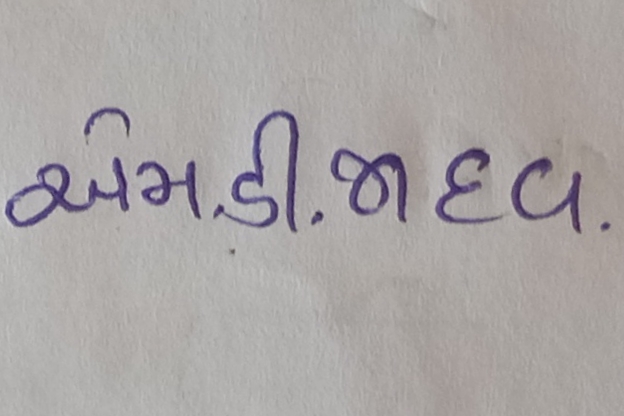 એમ.ડી.જાદવ.